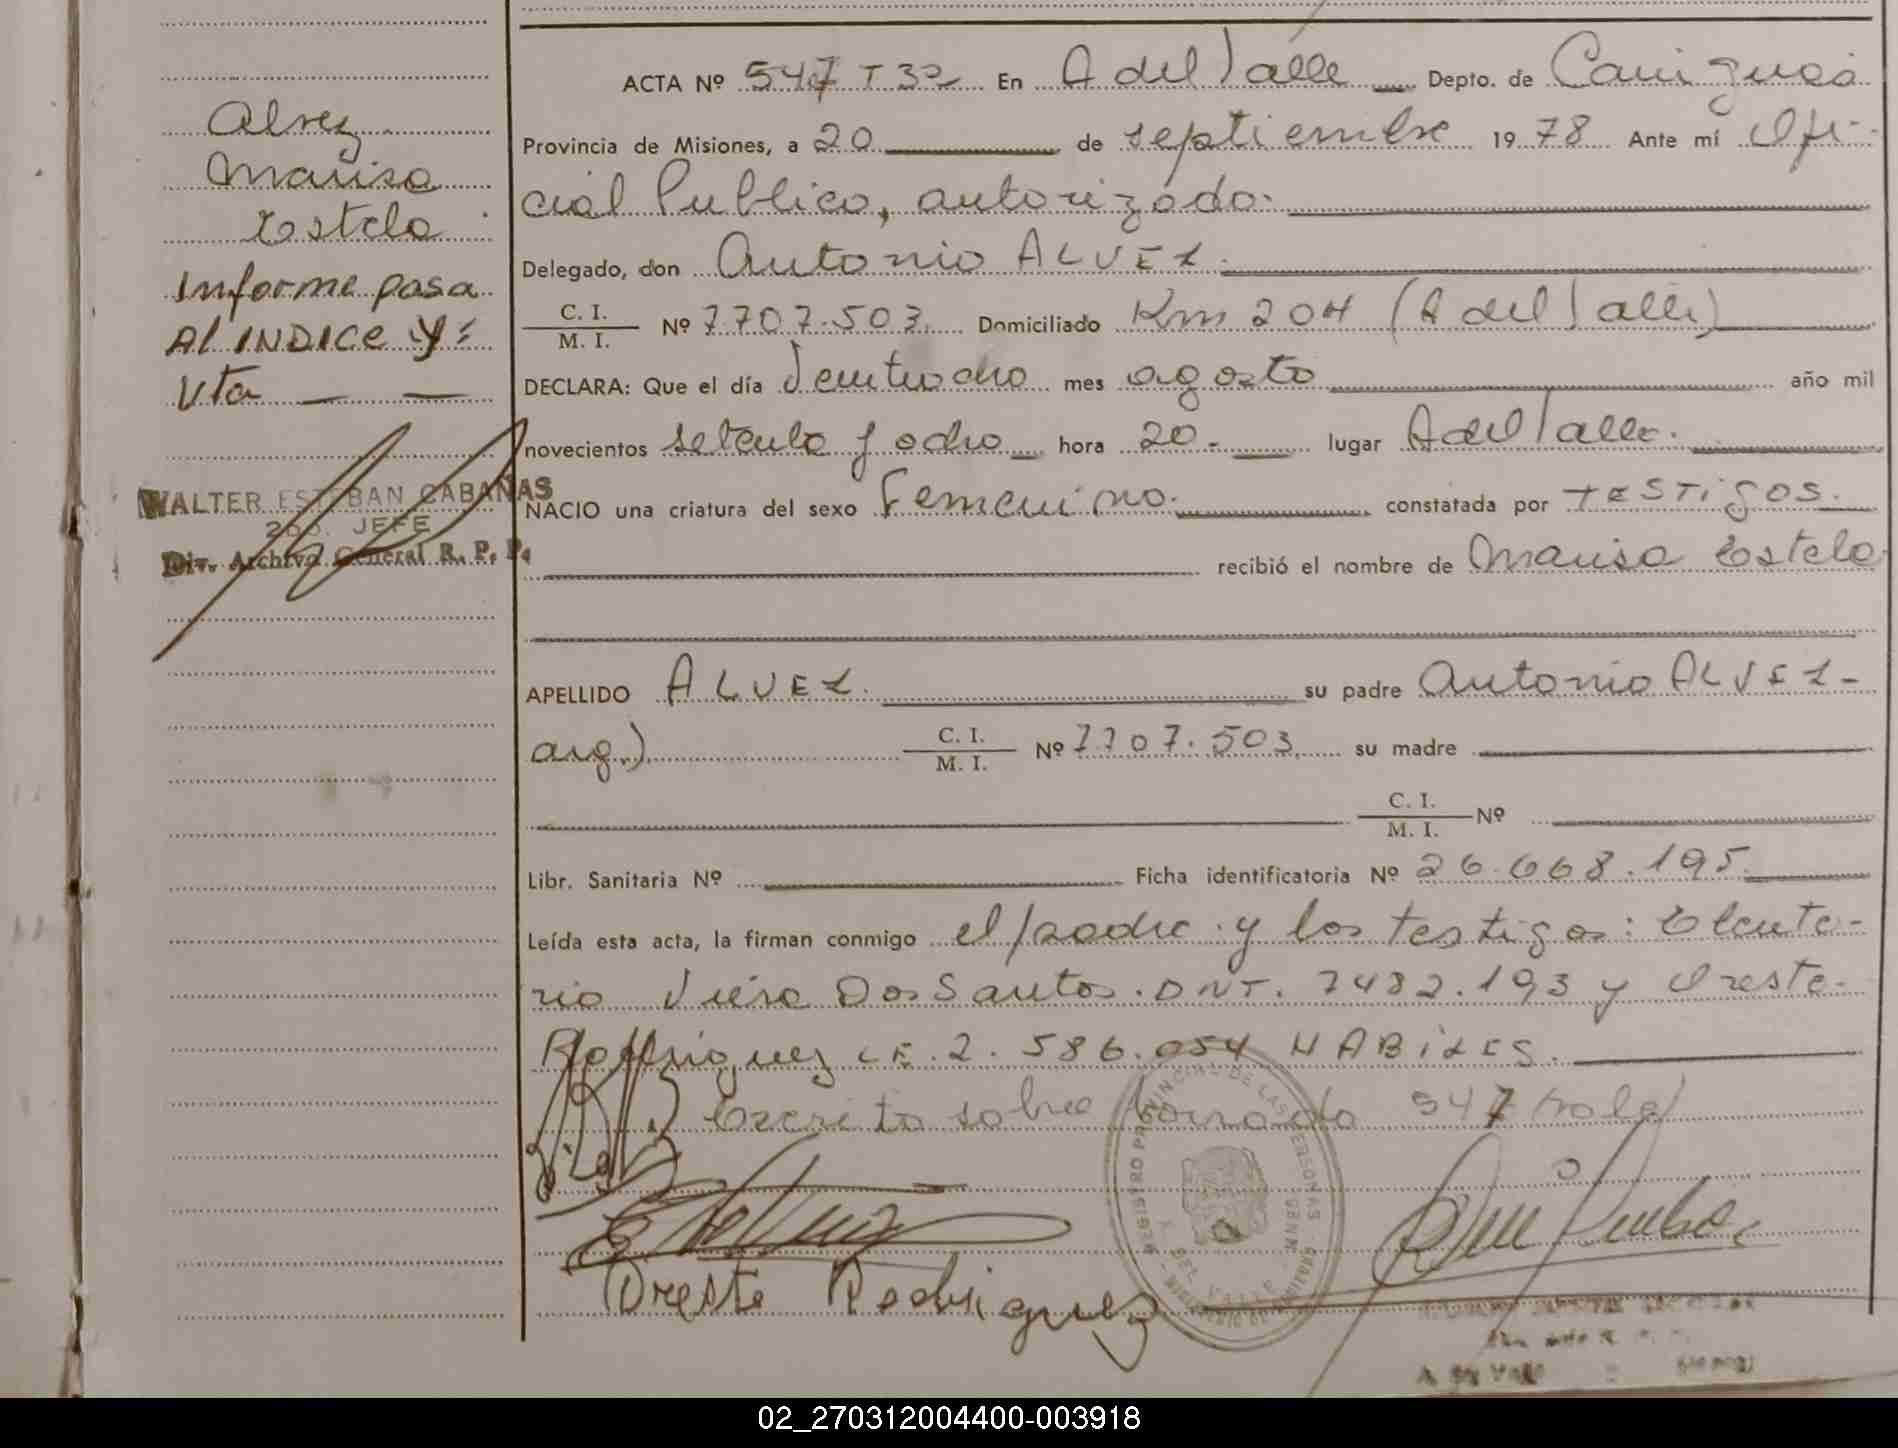 Alvez
Marisa
Estela
Informe pasa
Al INDICE y=
Vta — —
WALTER ESTEBAN CABAÑAS
2do. JEFE
Div. Archivo General R. P. P.
ACTA Nº 547 T 3º En A del Valle Depto. de Cainguas
Provincia de Misiones, a 20 de septiembre 1978 Ante mí Ofi-
cial Publico, autorizado.
Delegado, don Antonio ALVEZ.
C. I. / M. I. Nº 7.707.503. Domiciliado Km 204 (A del Valle)
DECLARA: Que el día Veintiocho mes agosto año mil
novecientos setenta y ocho hora 20.- lugar A del Valle.
NACIO una criatura del sexo Femenino. constatada por TESTigos.
recibió el nombre de Marisa Estela
APELLIDO ALVEZ. su padre Antonio ALVEZ-
arg.) C. I. / M. I. Nº 7.707.503. su madre
C. I. / M. I. Nº
Libr. Sanitaria Nº Ficha identificatoria Nº 26.668.195.
Leída esta acta, la firman conmigo el padre y los testigos: Eleute-
rio Viera Dos Santos. DNI. 7482.193 y Oreste-
Rodriguez C.E. 2.586.054 HABILES.
Escrito sobre borrado 547 vale)
Oreste Rodriguez
REGISTRO PROVINCIAL DE LAS PERSONAS
DEL VALLE
02_270312004400-003918